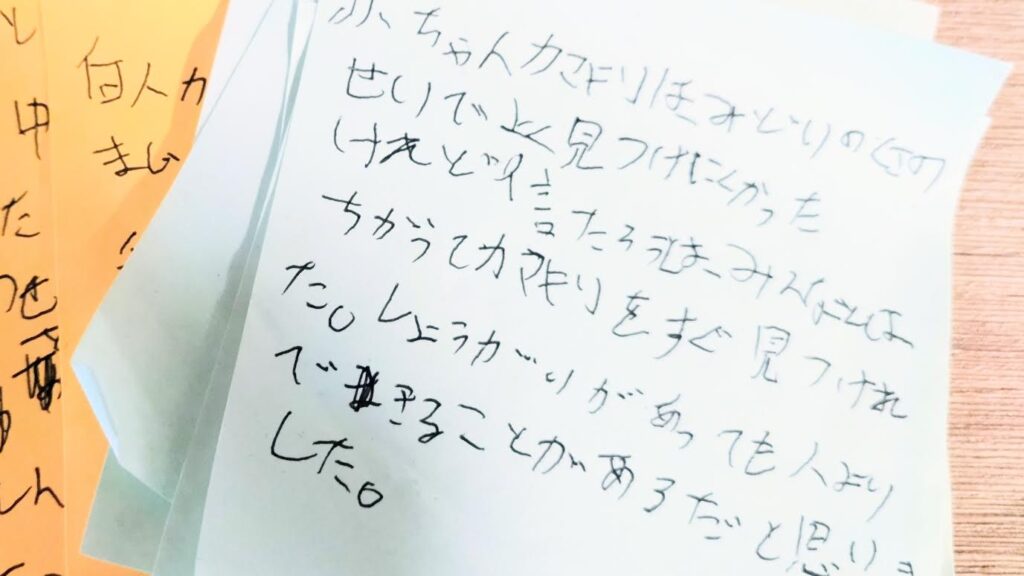 ちゃんカマキリはみどりの
せいで上く見つけにくかった
けれど信たろは、みんなとは
ちがってカマキリをすぐ見つけれ
た。しょうがいがあっても人より
できることがあるだと思いま
した。
何人カ
まじ
と
中
た
つせ
しん